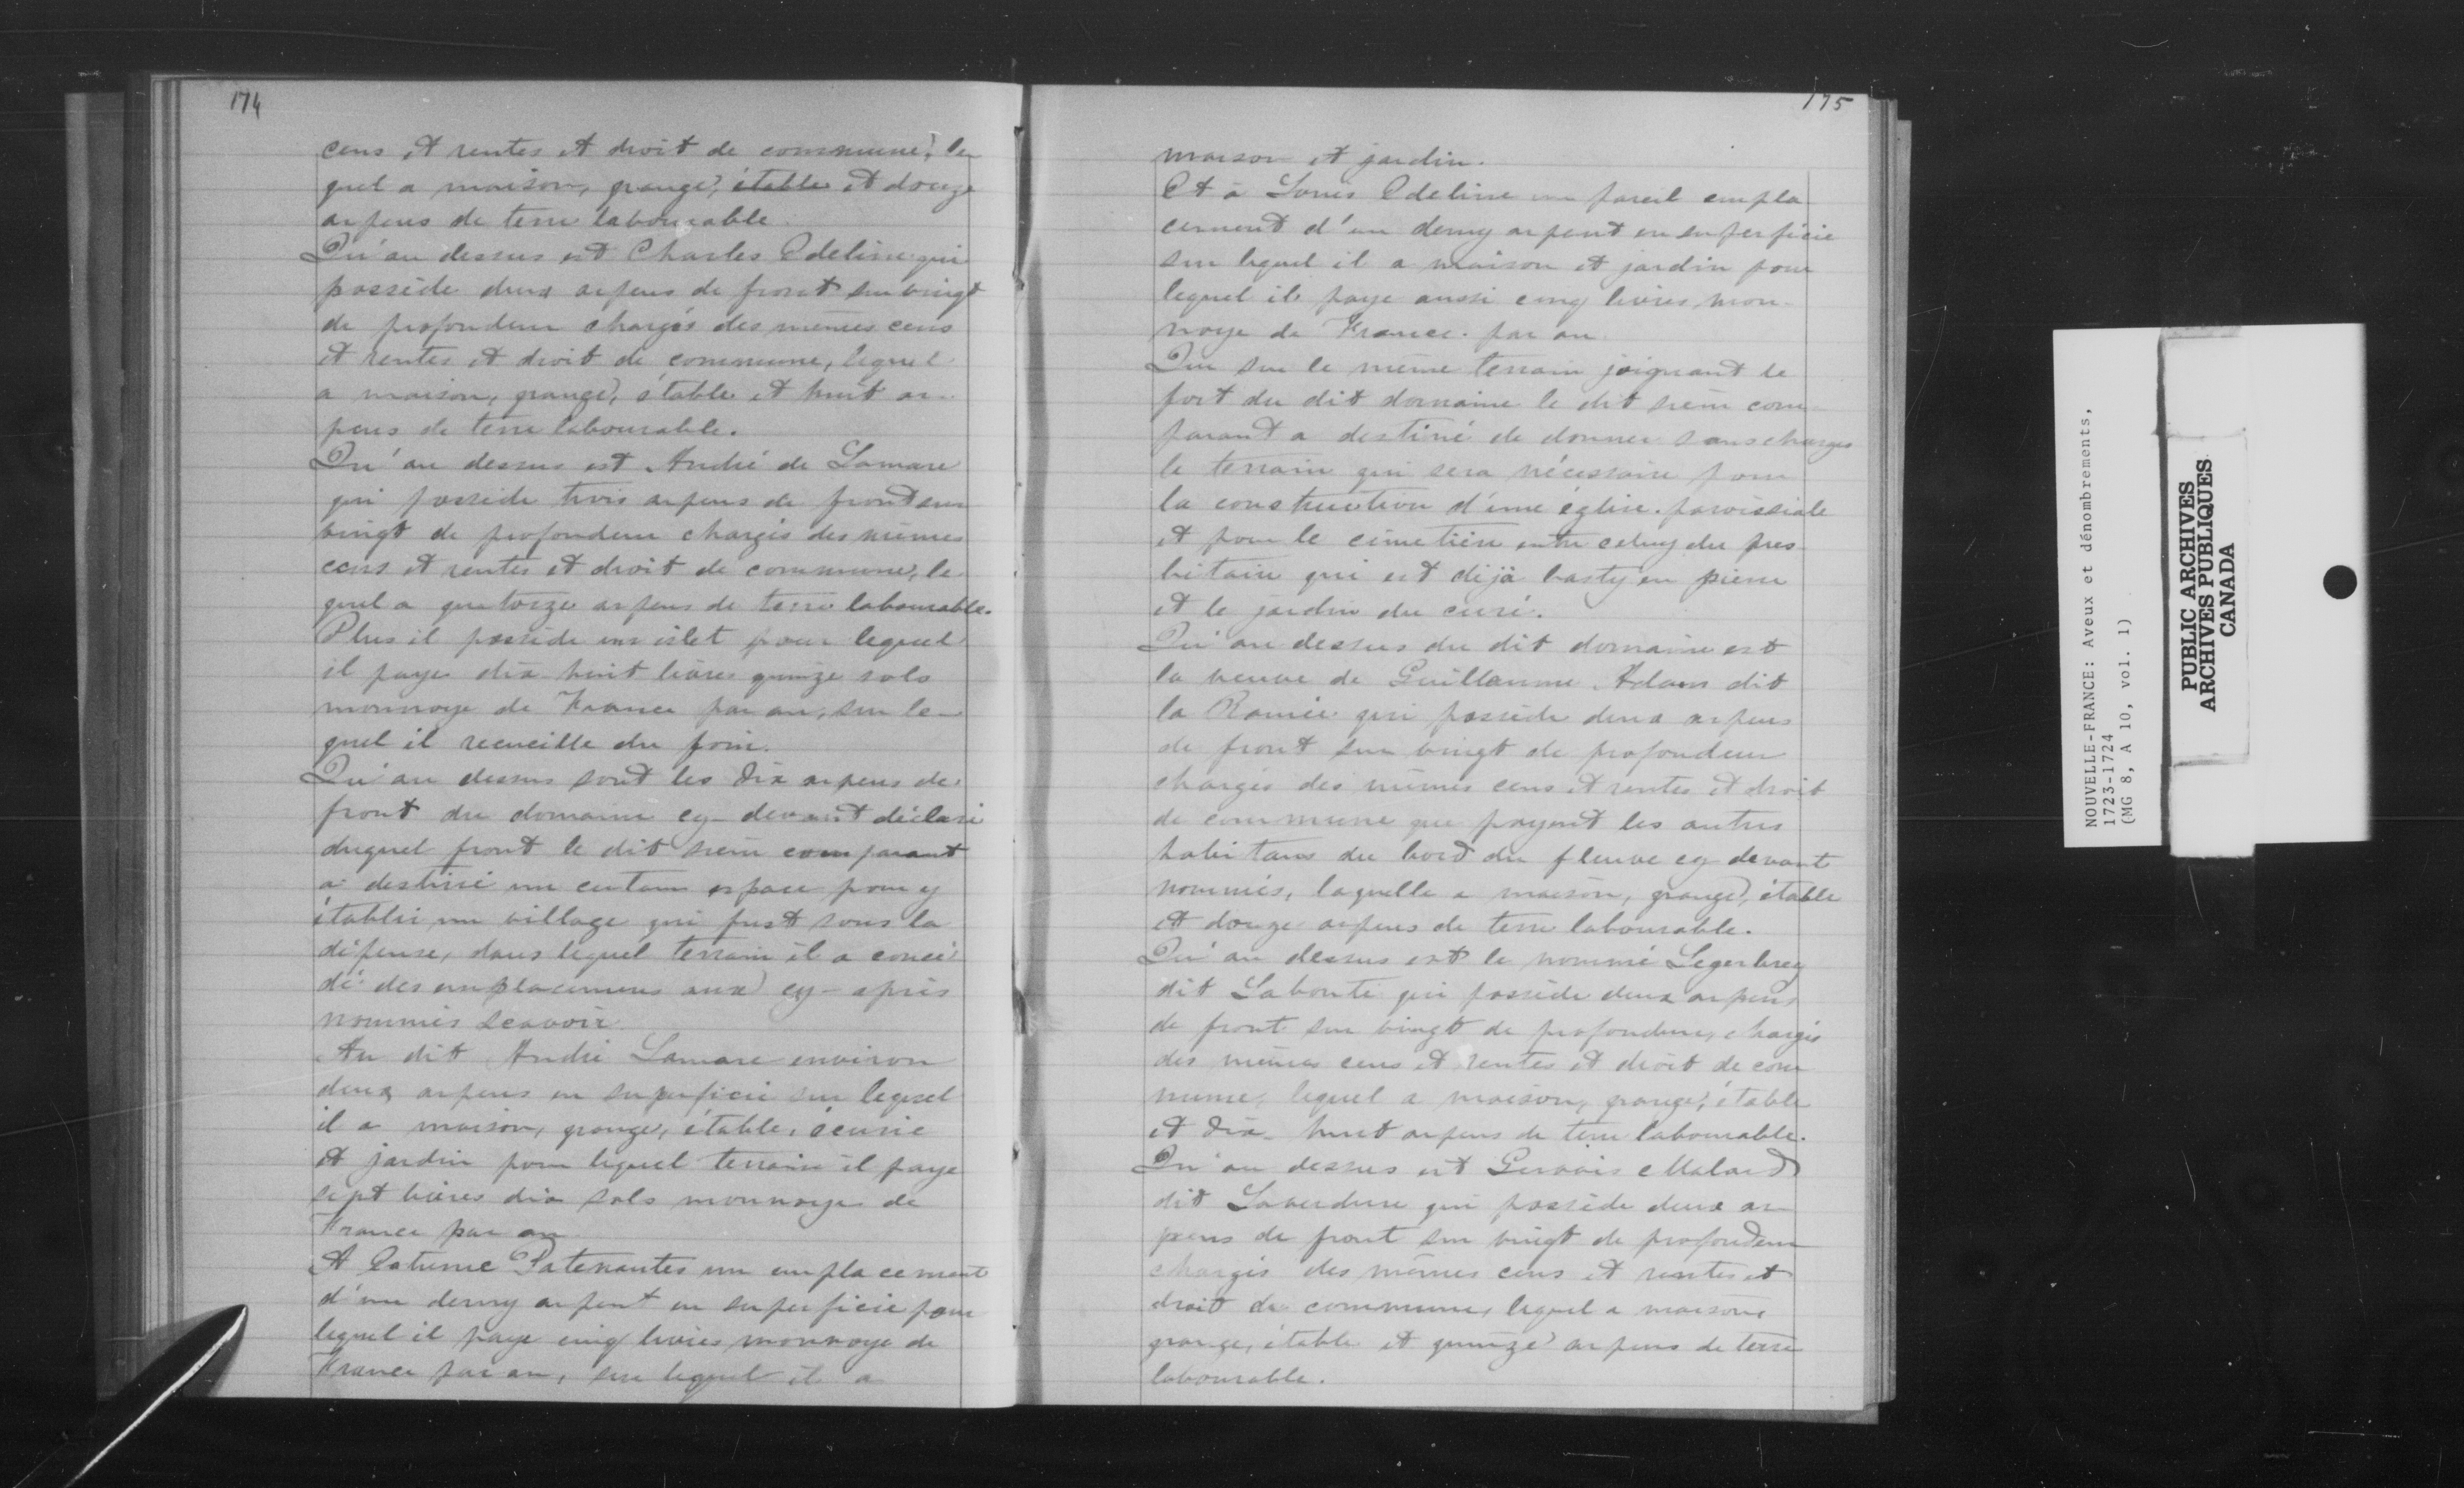 174
cens et rentes et droit de commune, le
quel a maison, grange, étable et douze
arpens de terre labourable
Qu'au dessus est Charles Edeline qui
possède deux arpens de front sur vingt
de profondeur chargés des mêmes cens
et rentes et droit de commune, lequel
a maison, grange, étable et huit ar-
pens de terre labourable.
Qu'au dessus est André de Lamare
qui possède trois arpens de front sur
vingt de profondeur chargés des mêmes
cens et rentes et droit de commune, le
quel a quatorze arpens de terre labourable.
Plus il possède un islet pour lequel
il paye dix huit livres quinze sols
monnoye de France par an, sur le-
quel il recueille du foin.
Qu'au dessus sont les dix arpens de
front du domaine cy-devant déclaré
duquel front le dit sieur comparant
a destiné un certain espace pour y
établir un village qui fust sous la
défense, dans lequel terrain il a concé
dé des emplacemens aux cy-après
nommés scavoir
Au dit André Lamare environ
deux arpens en superficie sur lequel
il a maison, grange, étable, écurie
et jardin pour lequel terrain il paye
sept livres dix sols monnoye de
France par an
A Estienne Patenautes un emplacement
d'un demy arpent en superficie pour
lequel il paye cinq livres monnoye de
France par an, sur lequel il a
175
maison et jardin.
Et à Louis Edeline un pareil empla
cement d'un demy arpent en superficie
sur lequel il a maison et jardin pour
lequel il paye aussi cinq livres mon-
noye de France par an
Que sur le même terrain joignant le
fort du dit domaine le dit sieur com-
parant a destiné de donner sans charges
le terrain qui sera nécessaire pour
la construction d'une église paroissiale
et pour le cimetière outre celuy du pres-
bitaire qui est déjà basty en pierre
et le jardin du curé.
Qu'au dessus du dit domaine est
la veuve de Guillaume Adam dit
la Ramée qui possède deux arpens
de front sur vingt de profondeur
chargés des mêmes cens et rentes et droit
de commune que payent les autres
habitans du bord du fleuve cy devant
nommés, laquelle a maison, grange, étable
et douze arpens de terre labourable.
Qu'au dessus est le nommé
dit Labonté qui possède deux arpens
de front sur vingt de profondeur, chargés
des mêmes cens et rentes et droit de com
mune, lequel a maison, grange, étable
et dix-huit arpens de terre labourable.
Qu'au dessus est Gervais Malard
dit Laverdure qui possède deux ar
pens de front sur vingt de profondeur
chargés des mêmes cens et rentes et
droit de commune, lequel a maison,
grange, étable et quinze arpens de terre
labourable.
NOUVELLE-FRANCE: Aveux et dénombrements,
1723-1724
(MG 8, A 10, vol. 1)
PUBLIC ARCHIVES
ARCHIVES PUBLIQUES
CANADA